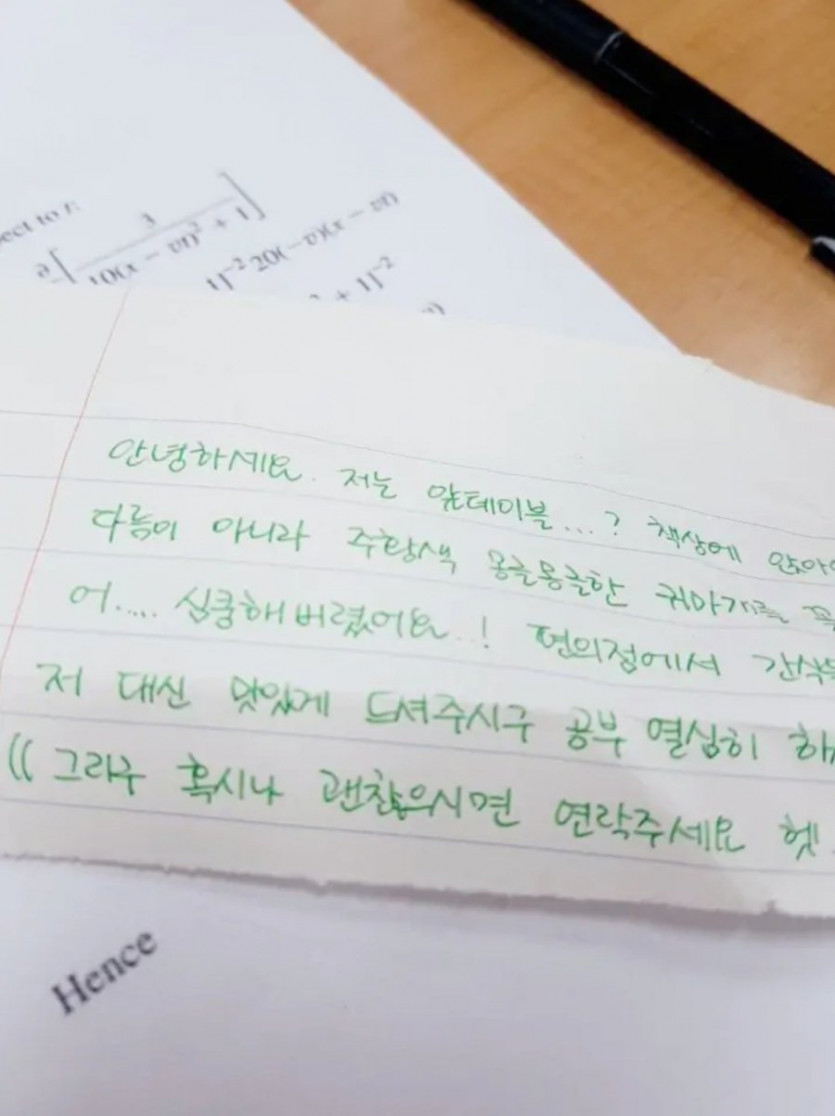 ect to t:
3
10(x − vt)² + 1
1]⁻² 20(−v)(x − vt)
+ 1]⁻²
안녕하세요. 저는 앞테이블...? 책상에 앉아
다름이 아니라 주황색 몽글몽글한 귀마개를
어..... 심쿵해버렸어요..! 편의점에서 간식
저 대신 맛있게 드셔주시구 공부 열심히 해
(( 그리구 혹시나 괜찮으시면 연락주세요 헷
Hence